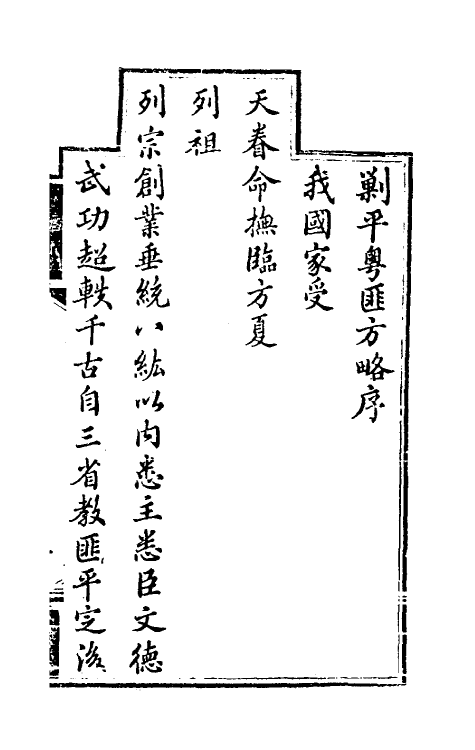 剿平粵匪方略序
我國家受
天眷命撫臨方夏
列祖
列宗創業垂統八紘以內悉主悉臣文德
武功超軼千古自三省教匪平定後